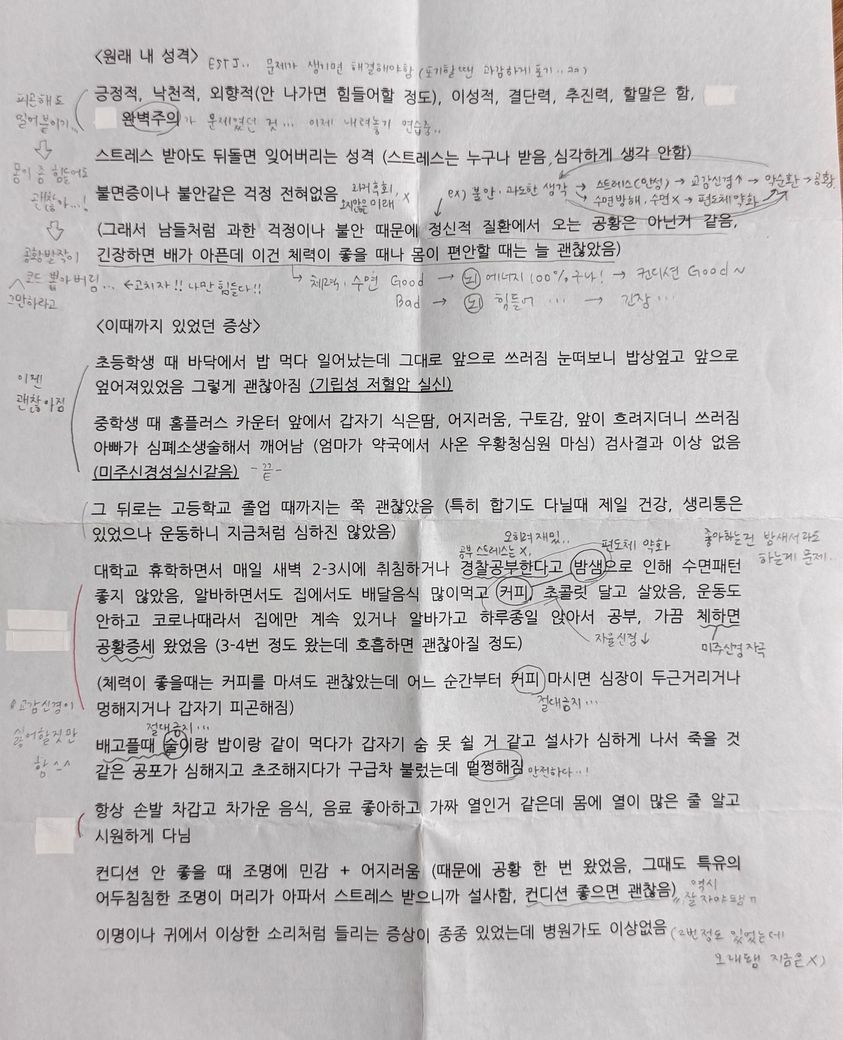 <원래 내 성격> ESTJ.. 문제가 생기면 해결해야함 (포기할땐 과감하게 포기..ㅋㅋ)
긍정적, 낙천적, 외향적(안 나가면 힘들어할 정도), 이성적, 결단력, 추진력, 할말은 함,
피곤해도
밀어붙이기..
완벽주의가 문제였던 것... 이제 내려놓기 연습중..
스트레스 받아도 뒤돌면 잊어버리는 성격 (스트레스는 누구나 받음,심각하게 생각 안함)
몸이 좀 힘들어도
괜찮아..!
불면증이나 불안같은 걱정 전혀없음 과거후회, 오지않은 미래 X
ex) 불안·과도한 생각 → 스트레스(만성) → 교감신경↑ → 악순환 → 공황
수면방해, 수면X → 편도체 약화
(그래서 남들처럼 과한 걱정이나 불안 때문에 정신적 질환에서 오는 공황은 아닌거 같음,
긴장하면 배가 아픈데 이건 체력이 좋을 때나 몸이 편안할 때는 늘 괜찮았음)
공황발작이
코드 뽑아버림... ←고치자!! 나만 힘들다!!
그만하라고
체력·수면 Good → 뇌 에너지 100%구나! → 컨디션 Good~
Bad → 뇌 힘들어 ... → 긴장...
<이때까지 있었던 증상>
초등학생 때 바닥에서 밥 먹다 일어났는데 그대로 앞으로 쓰러짐 눈떠보니 밥상엎고 앞으로
엎어져있었음 그렇게 괜찮아짐 (기립성 저혈압 실신)
이젠
괜찮아짐
중학생 때 홈플러스 카운터 앞에서 갑자기 식은땀, 어지러움, 구토감, 앞이 흐려지더니 쓰러짐
아빠가 심폐소생술해서 깨어남 (엄마가 약국에서 사온 우황청심원 마심) 검사결과 이상 없음
(미주신경성실신같음) -끝-
그 뒤로는 고등학교 졸업 때까지는 쭉 괜찮았음 (특히 합기도 다닐때 제일 건강, 생리통은
있었으나 운동하니 지금처럼 심하진 않았음)
오히려 재밌..
공부 스트레스는 X,
편도체 약화
좋아하는건 밤새서라도
하는게 문제..
대학교 휴학하면서 매일 새벽 2-3시에 취침하거나 경찰공부한다고 밤샘으로 인해 수면패턴
좋지 않았음, 알바하면서도 집에서도 배달음식 많이먹고 커피, 초콜릿 달고 살았음, 운동도
안하고 코로나때라서 집에만 계속 있거나 알바가고 하루종일 앉아서 공부, 가끔 체하면
공황증세 왔었음 (3-4번 정도 왔는데 호흡하면 괜찮아질 정도)
자율신경↓
미주신경 자극
(체력이 좋을때는 커피를 마셔도 괜찮았는데 어느 순간부터 커피 마시면 심장이 두근거리거나
멍해지거나 갑자기 피곤해짐)
절대금지...
교감신경이
싫어할짓만
함 ^^
절대금지...
배고플때 술이랑 밥이랑 같이 먹다가 갑자기 숨 못 쉴 거 같고 설사가 심하게 나서 죽을 것
같은 공포가 심해지고 초조해지다가 구급차 불렀는데 멀쩡해짐 안전하다..!
항상 손발 차갑고 차가운 음식, 음료 좋아하고 가짜 열인거 같은데 몸에 열이 많은 줄 알고
시원하게 다님
컨디션 안 좋을 때 조명에 민감 + 어지러움 (때문에 공황 한 번 왔었음, 그때도 특유의
어두침침한 조명이 머리가 아파서 스트레스 받으니까 설사함, 컨디션 좋으면 괜찮음)
역시
잘 자야됌ㅠ
이명이나 귀에서 이상한 소리처럼 들리는 증상이 종종 있었는데 병원가도 이상없음 (2번정도 있었는데
오래됌 지금은 X)